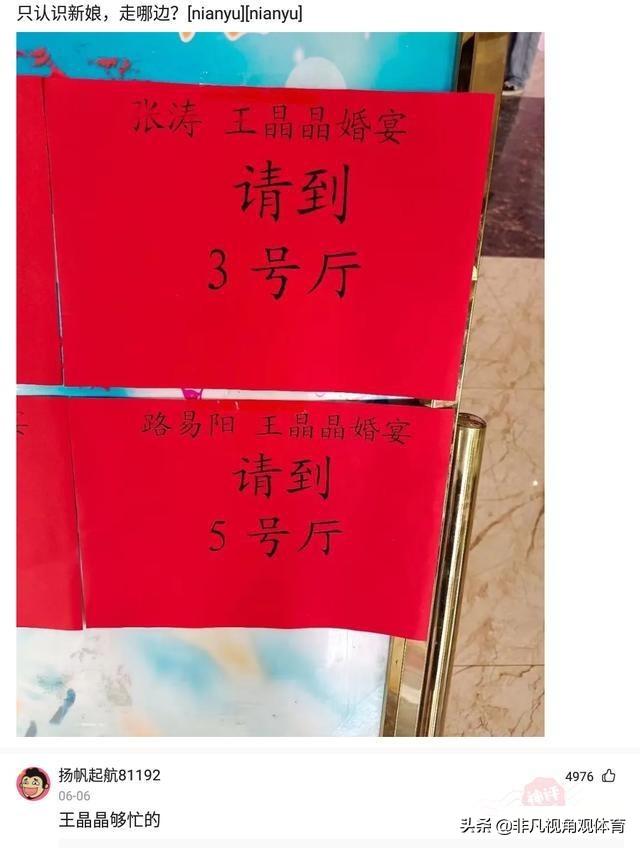 只认识新娘，走哪边？[nianyu][nianyu]
张涛 王晶晶婚宴
请到
3号厅
路易阳 王晶晶婚宴
请到
5号厅
扬帆起航81192
4976
06-06
神评
王晶晶够忙的
头条 @非凡视角观体育